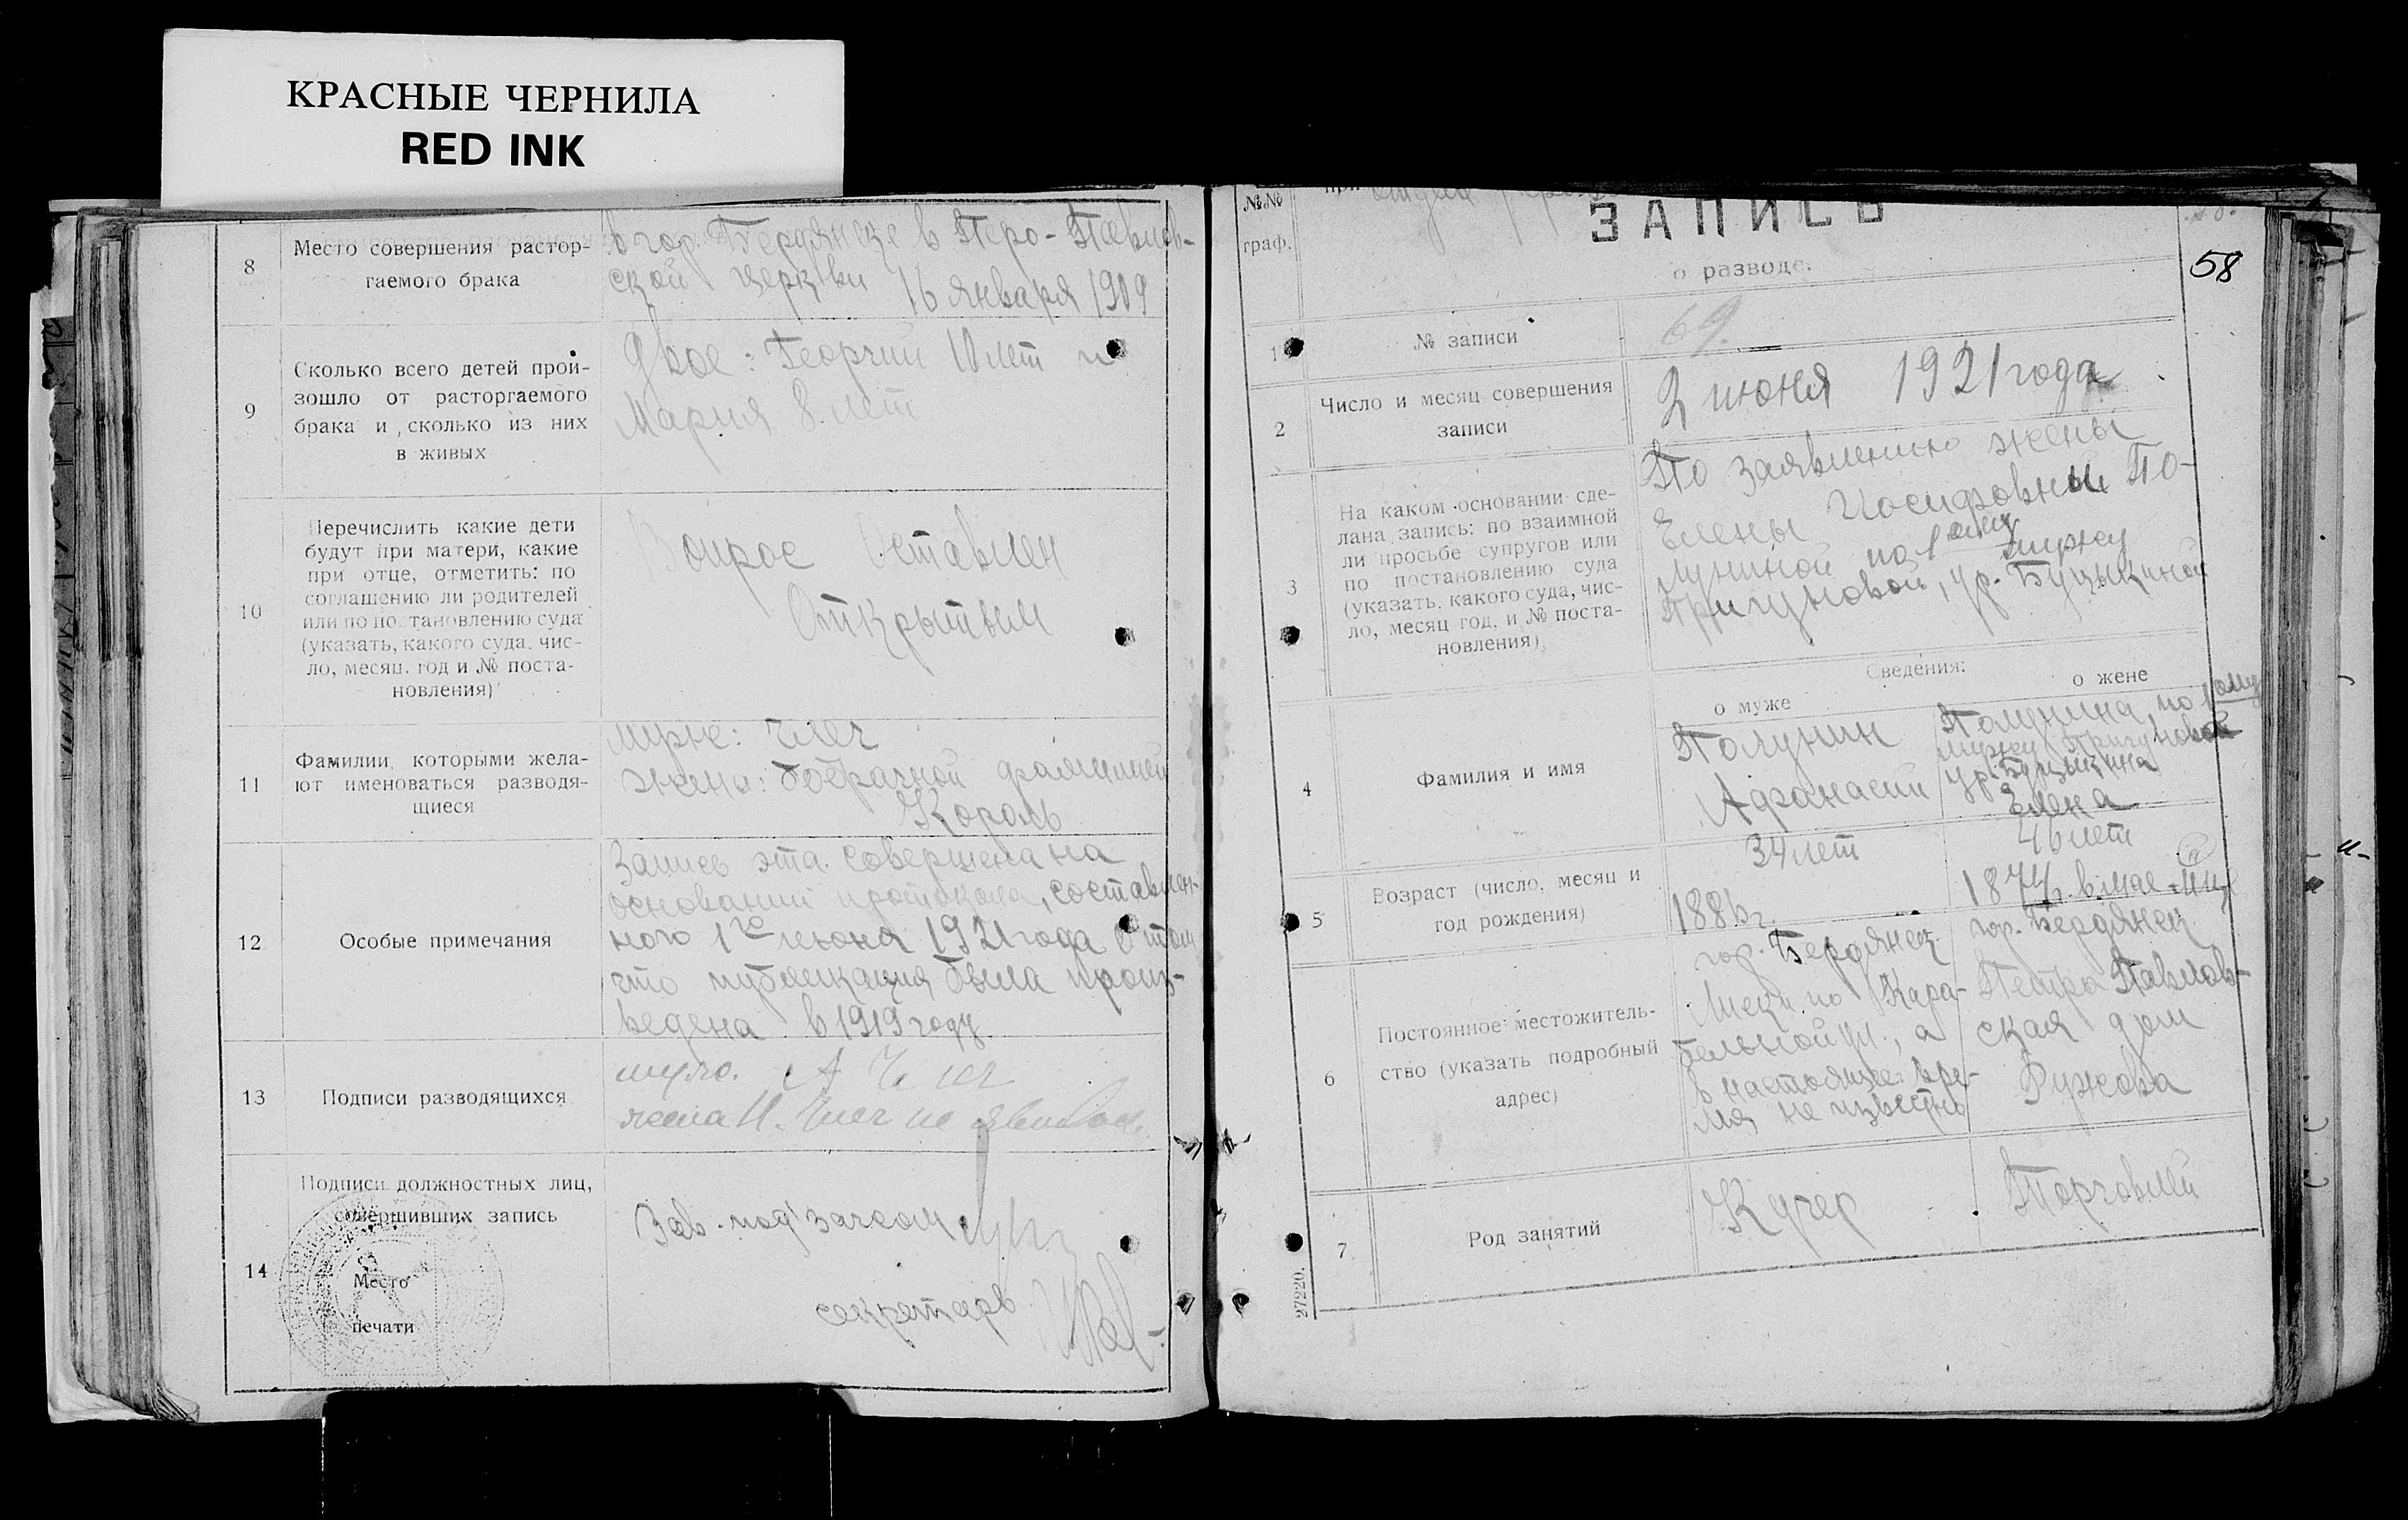 КРАСНЫЕ ЧЕРНИЛА
RED INK
8
Место совершения растор-
гаемого брака
в гор. Бердянске в Петро-Павлов-
ской церкви 16 января 1909
9
Сколько всего детей прои-
зошло от расторгаемого
брака и сколько из них
в живых
Двое: Георгий 10 лет и
Мария 8 лет
10
Перечислить какие дети
будут при матери, какие
при отце, отметить: по
соглашению ли родителей
или по постановлению суда
(указать, какого суда, чис-
ло, месяц, год и № поста-
новления)
Вопрос Оставлен
Открытым
11
Фамилии, которыми жела-
ют именоваться разводя-
щиеся
муж:
жена: добрачной фамилией
Король
12
Особые примечания
Запись эта совершена на
основании протокола, составлен-
ного 1го июня 1921 года о том
что публикация была произ-
ведена в 1919 году
13
Подписи разводящихся
муж. А
жена не явилась
14
Подписи должностных лиц,
совершивших запись
Место
печати
Зав. под'загсом
секретарь
№№
граф.
ЗАПИСЬ
о разводе.
58
1
№ записи
69.
2
Число и месяц совершения
записи
2 июня 1921 года
3
На каком основании сде-
лана запись: по взаимной
ли просьбе супругов или
по постановлению суда
(указать, какого суда, чис-
ло, месяц, год, и № поста-
новления)
По заявлению жены
Елены Иосифовны По-
луниной по 1ому мужу
Пригуновой, ур. Буцыкиной
Сведения:
о муже
о жене
4
Фамилия и имя
Полунин
Афанасий
Полунина по 1ому
мужу Пригунова
ур. Буцыкина
Елена
5
Возраст (число, месяц и
год рождения)
34 лет
1886 г.
46 лет
6
Постоянное местожитель-
ство (указать подробный
адрес)
гор. Бердянск
по Кара-
бельной ул., а
в настоящее вре-
мя не известно
гор. Бердянск
Петро Павлов-
ская дом
Рыжова
7
Род занятий
Кучер
Торговлей
27220.